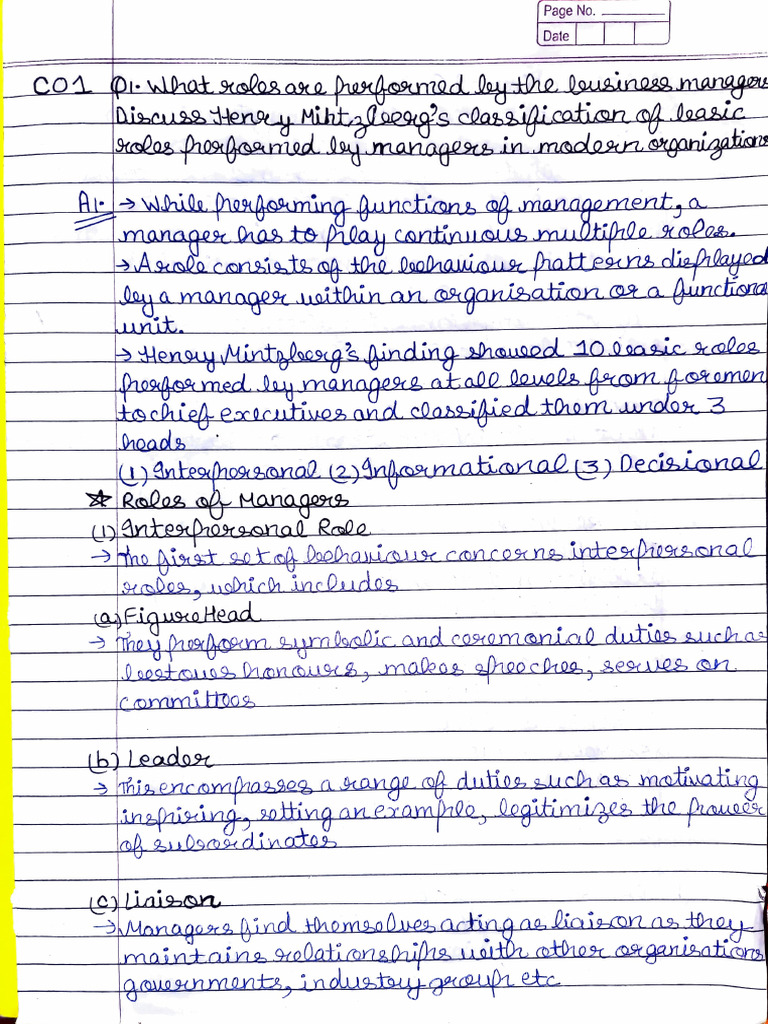 Page No.
Date
CO1 Q1. What roles are performed by the business managers
Discuss Henry Mintzberg's classification of basic
roles performed by managers in modern organizations
A1. → While performing functions of management, a
manager has to play continuous multiple roles.
→ A role consists of the behaviour patterns displayed
by a manager within an organisation or a functional
unit.
→ Henry Mintzberg's finding showed 10 basic roles
performed by managers at all levels from foremen
to chief executives and classified them under 3
heads
(1) Interpersonal (2) Informational (3) Decisional
☆ Roles of Managers
(1) Interpersonal Role
→ The first set of behaviour concerns interpersonal
roles, which includes
(a) Figure Head
→ They perform symbolic and ceremonial duties such as
bestows honours, makes speeches, serves on
committees
(b) Leader
→ This encompasses a range of duties such as motivating
inspiring, setting an example, legitimizes the power
of subordinates
(c) Liaison
→ Managers find themselves acting as liaison as they
maintains relationships with other organisations
governments, industry group etc